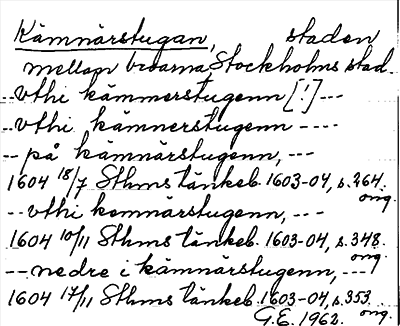 Kämnärstugan, staden
mellan broarna, Stockholms stad.
-- vthi kämmerstugenn [!] ---
-- vthi kämnerstugenn ----
-- på kämnärstugenn, ---
1604 18/7 Sthms tänkeb. 1603-04, s. 264.
omg.
-- vthi kemnärstugenn, ---
1604 10/11 Sthms tänkeb. 1603-04, s. 348.
omg.
-- nedre i kämnärstugenn, ---
1604 17/11 Sthms tänkeb. 1603-04, s. 353.
omg.
G.E. 1962.